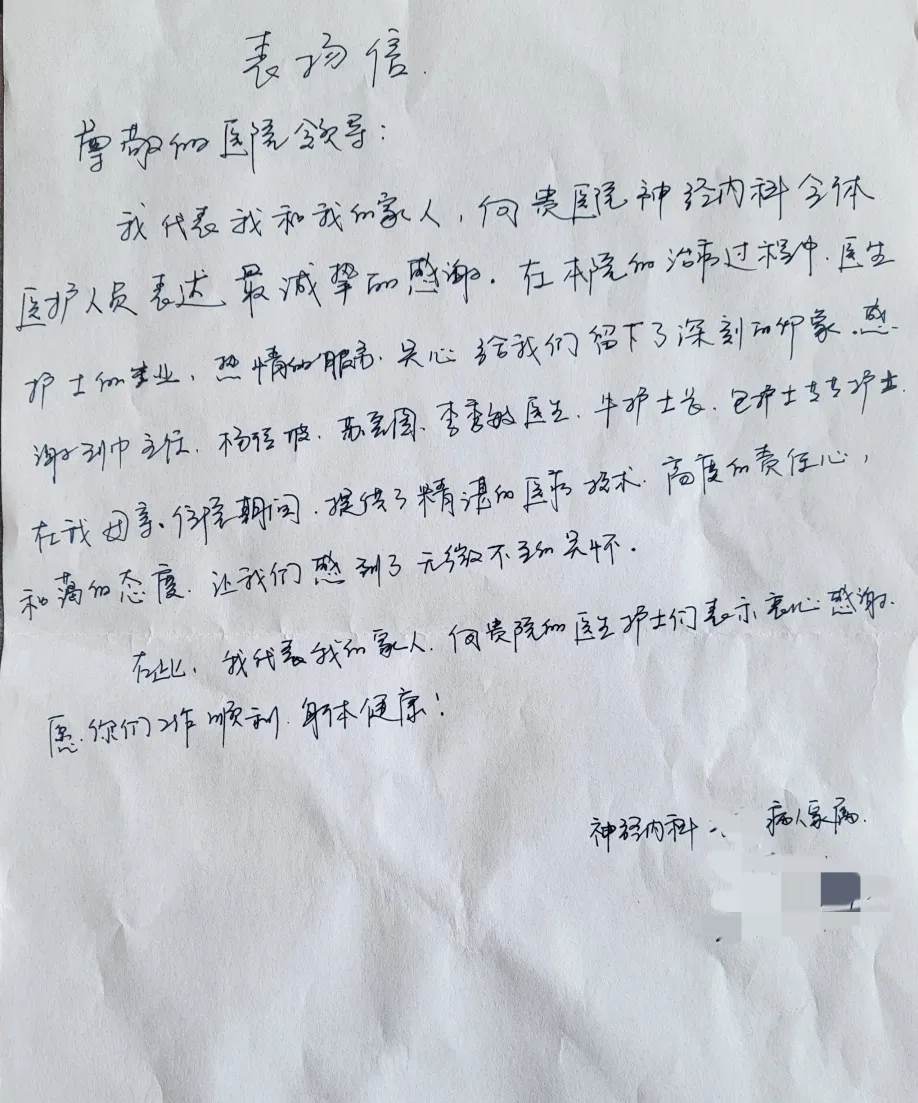 表扬信.
尊敬的医院领导:
我代表我和我的家人,向贵医院神经内科全体
医护人员表述最诚挚的感谢.在本院的治病过程中.医生
护士的专业,热情的服务,关心给我们留下了深刻的印象.感
谢到中主任、杨、李秀敏医生、牛护士长、护士护士.
在我母亲住院期间.提供了精湛的医疗技术.高度的责任心,
和蔼的态度.让我们感到了无微不至的关怀.
在此,我代表我的家人.向贵院的医生护士们表示衷心感谢.
愿你们工作顺利.身体健康!
神经内科 病人家属.